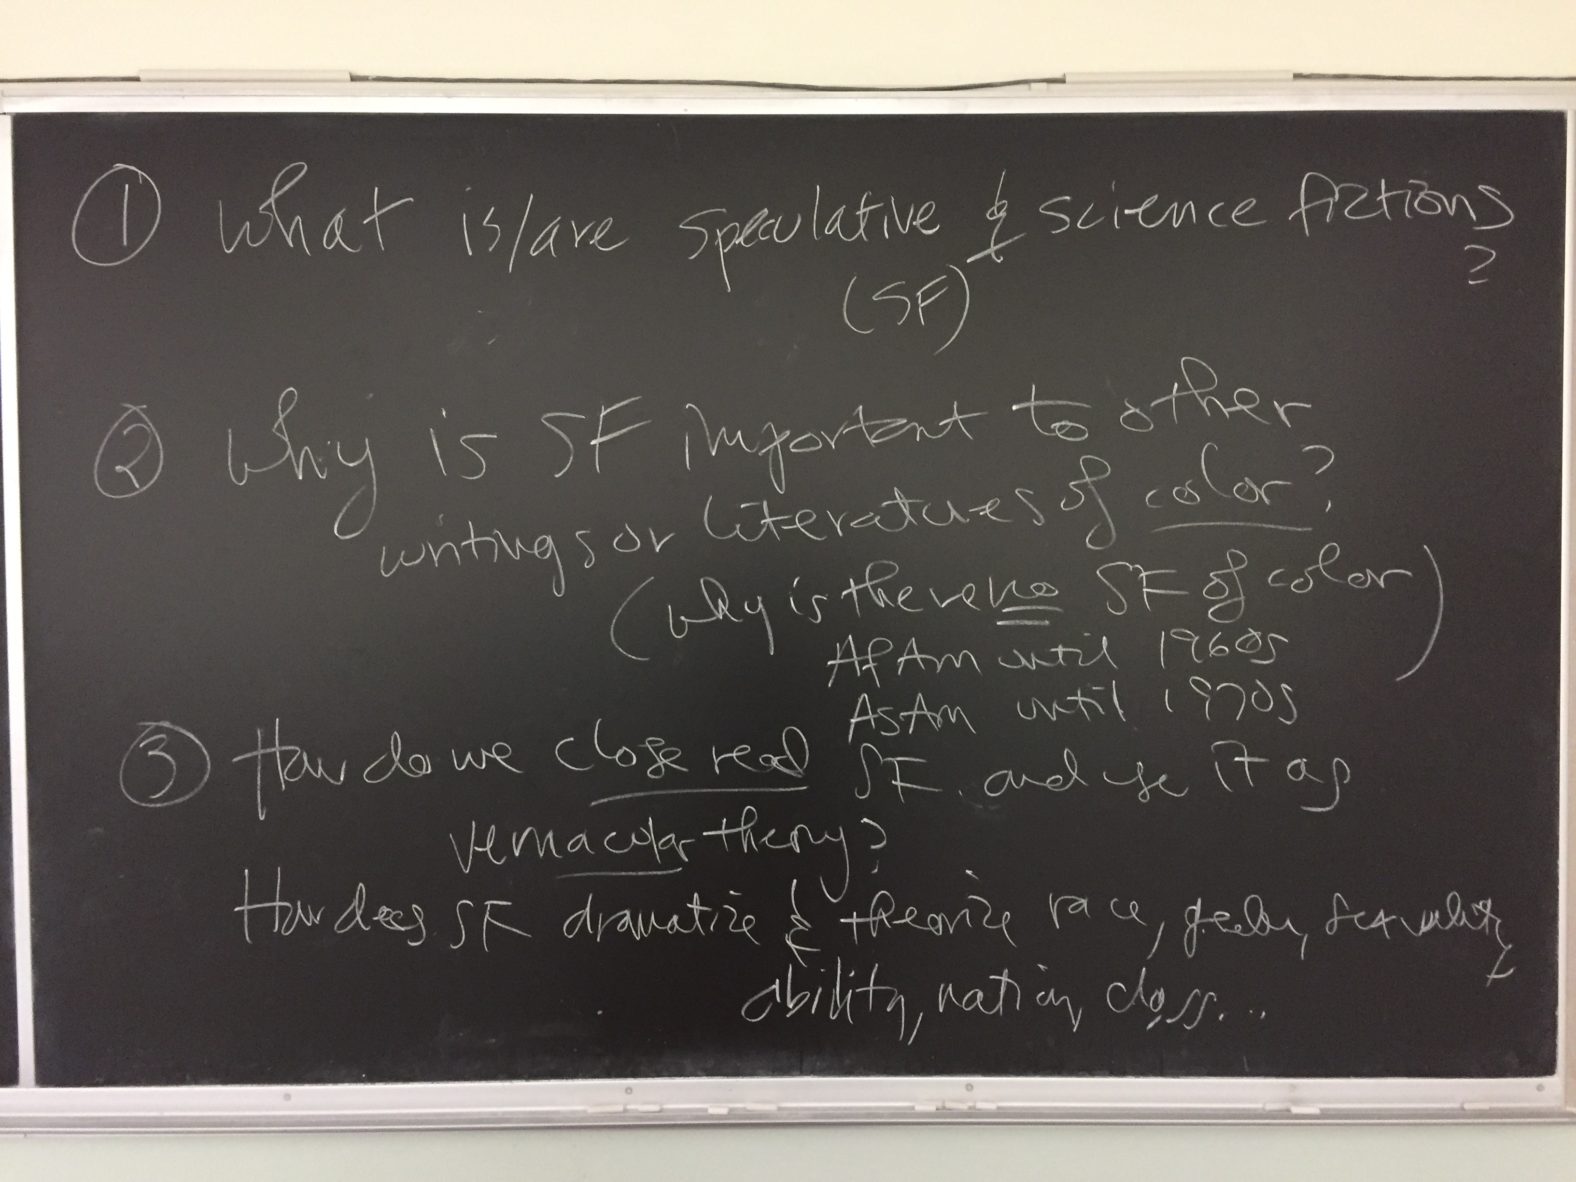 ① What is/are speculative & science fictions
?
(SF)
② Why is SF important to other
writings or literatures of color?
(why is there no SF of color)
AfAm until 1960s
AsAm until 1970s
③ How do we close read SF and use it as
vernacular theory?
How does SF dramatize & theorize race, gender, sexuality,
ability, nation, class...